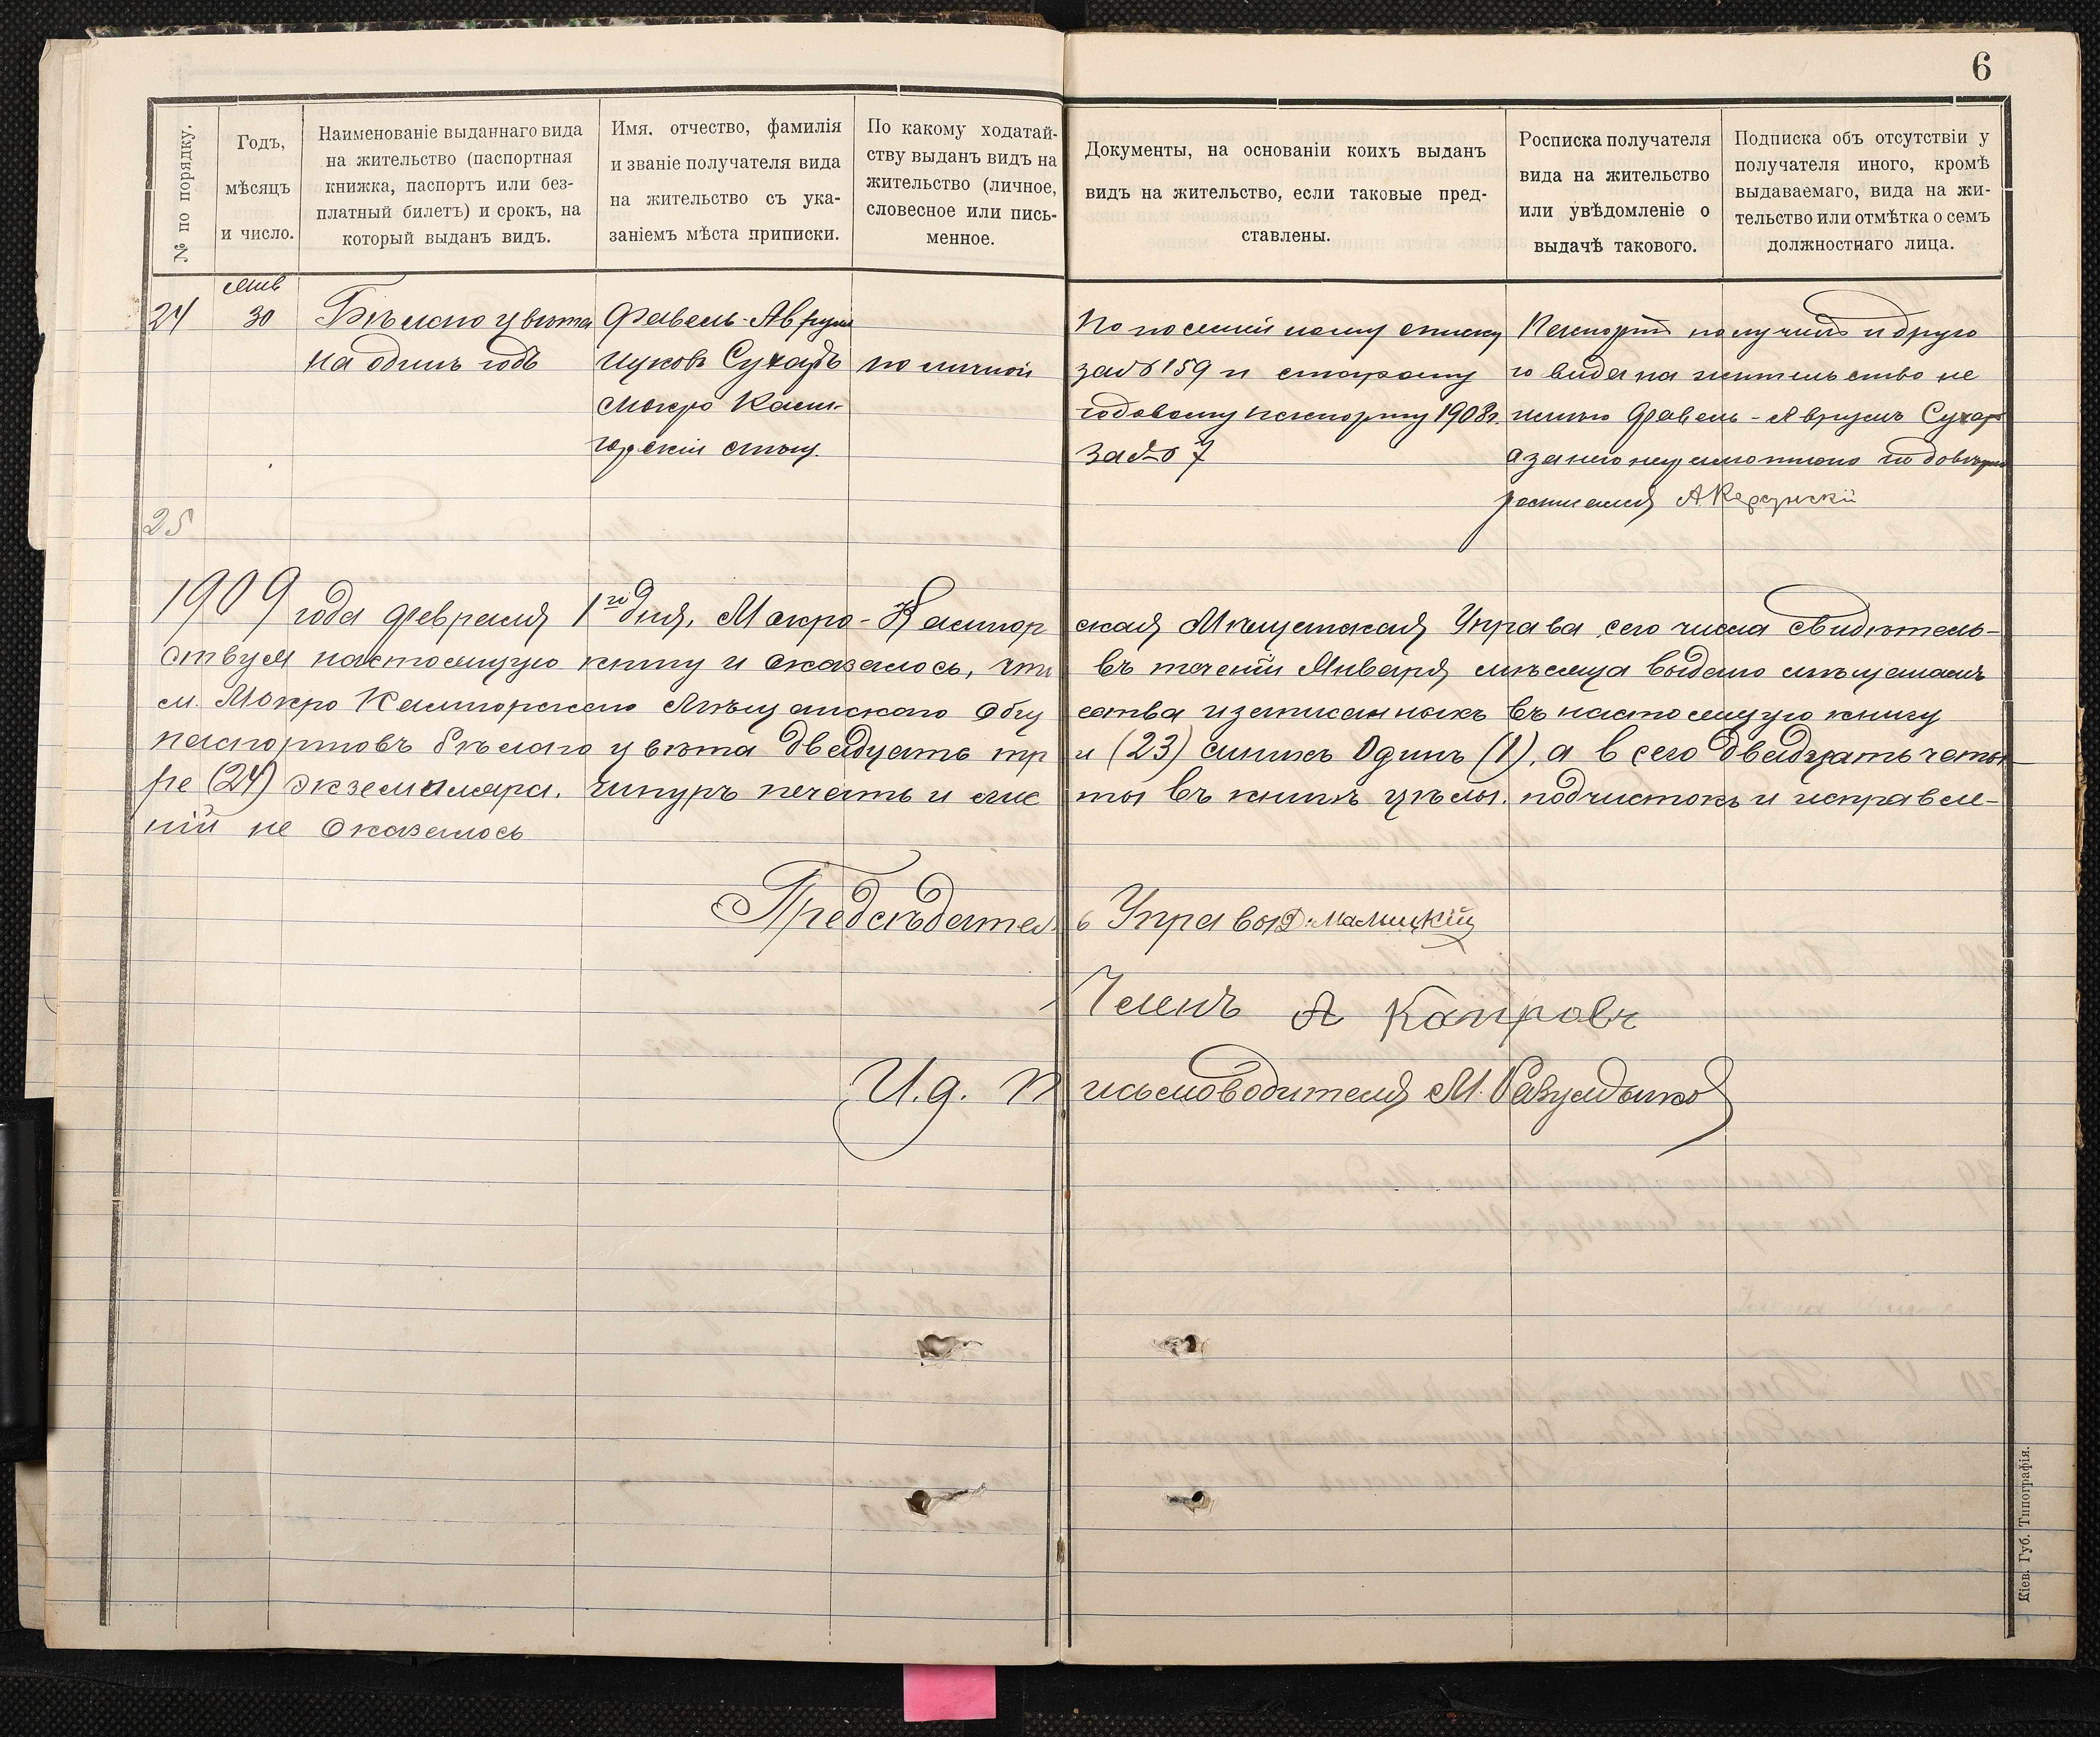 6
№ по порядку.
Годъ,
мѣсяцъ
и число.
Наименованіе выданнаго вида
на жительство (паспортная
книжка, паспортъ или без-
платный билетъ) и срокъ, на
который выданъ видъ.
Имя, отчество, фамилія
и званіе получателя вида
на жительство съ ука-
заніемъ мѣста приписки.
По какому ходатай-
ству выданъ видъ на
жительство (личное,
словесное или пись-
менное.
Документы, на основаніи коихъ выданъ
видъ на жительство, если таковые пред-
ставлены.
Росписка получателя
вида на жительство
или увѣдомленіе о
выдачѣ такового.
Подписка объ отсутствіи у
получателя иного, кромѣ
выдаваемаго, вида на жи-
тельство или отмѣтка о семъ
должностнаго лица.
24
Янв
30
Бѣлаго цвѣта
на одинъ годъ
Фавель-Аврум
Ицковъ Сухаръ
Мокро Калиг-
горскій мѣщ.
по личной
По посемейному списку
за № 159 и старому
годовому паспорту 1908 г.
за № 7
Паспортъ получилъ и друго
го вида на жительство не
имѣю Фавель-Аврумъ Сухар
а за него неграмотного по довѣрію
росписался
25
1909 года февраля 1го дня, Мокро-Калигор ская Мѣщанская Управа сего числа свидѣтель-
ствуя настоящую книгу и оказалось, что въ теченіи Января мѣсяца выдано мѣщанамъ
м. Мокро Калигорского Мѣщанского Общ ества и записанныхъ въ настоящую книгу
паспортовъ бѣлаго цвѣта двадцать тр и (23) синихъ Одинъ (1), а всего двадцать четы-
ре (24) экземпляра. Шнуръ печать и лис ты въ книгѣ цѣлы. подчистокъ и исправле-
ній не оказалось
Предсѣдатель Управы Д. Малицкій
Членъ А
И.д. Письмоводителя М.
Кіев. Губ. Типографія.